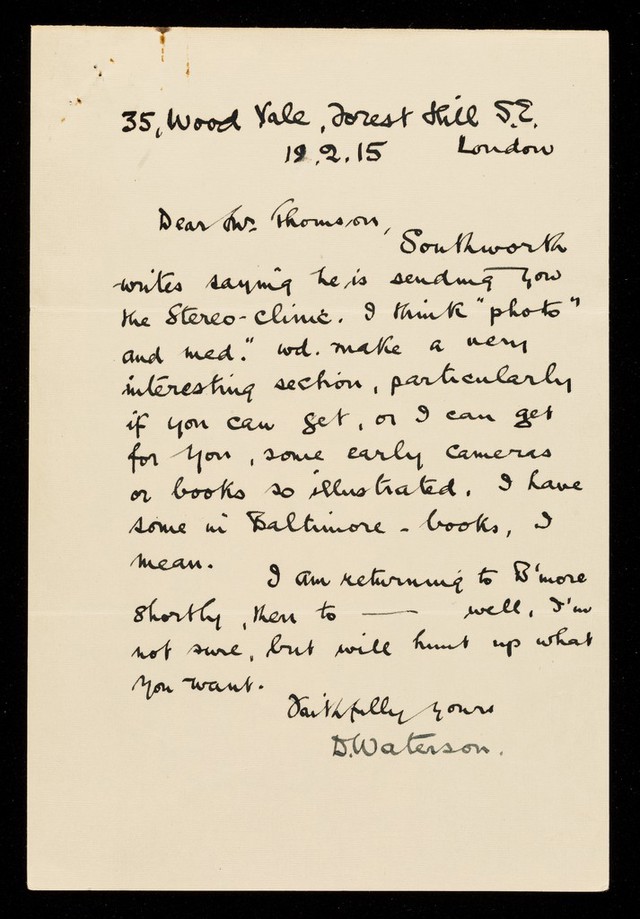 35, Wood Vale, Forest Hill S.E.
12.2.15 London
Dear Mr. Thomson,
Southworth
writes saying he is sending you
the Stereo-clinic. I think "photo"
and med." wd. make a very
interesting section, particularly
if you can get, or I can get
for you, some early cameras
or books so illustrated. I have
some in Baltimore - books, I
mean.
I am returning to B'more
shortly, then to —— well, I'm
not sure, but will hunt up what
you want.
Faithfully yours
D. Waterson.